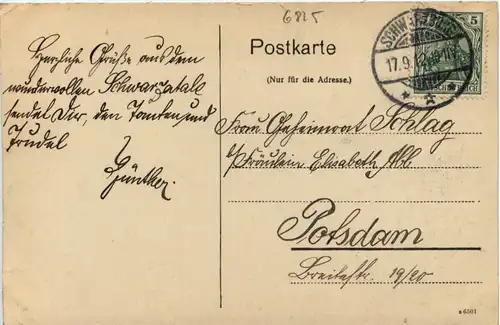 6825
Postkarte
(Nur für die Adresse.)
5
17.9.12
Herzliche Grüße aus dem
wundervollen Schwarzatale
sendet Dir, den Tanten und
Trudel
Günther.
Frau Geheimrat Schlag
b/ Fräulein Elisabeth Abl
Potsdam
Breitestr. 19/20
a 6501